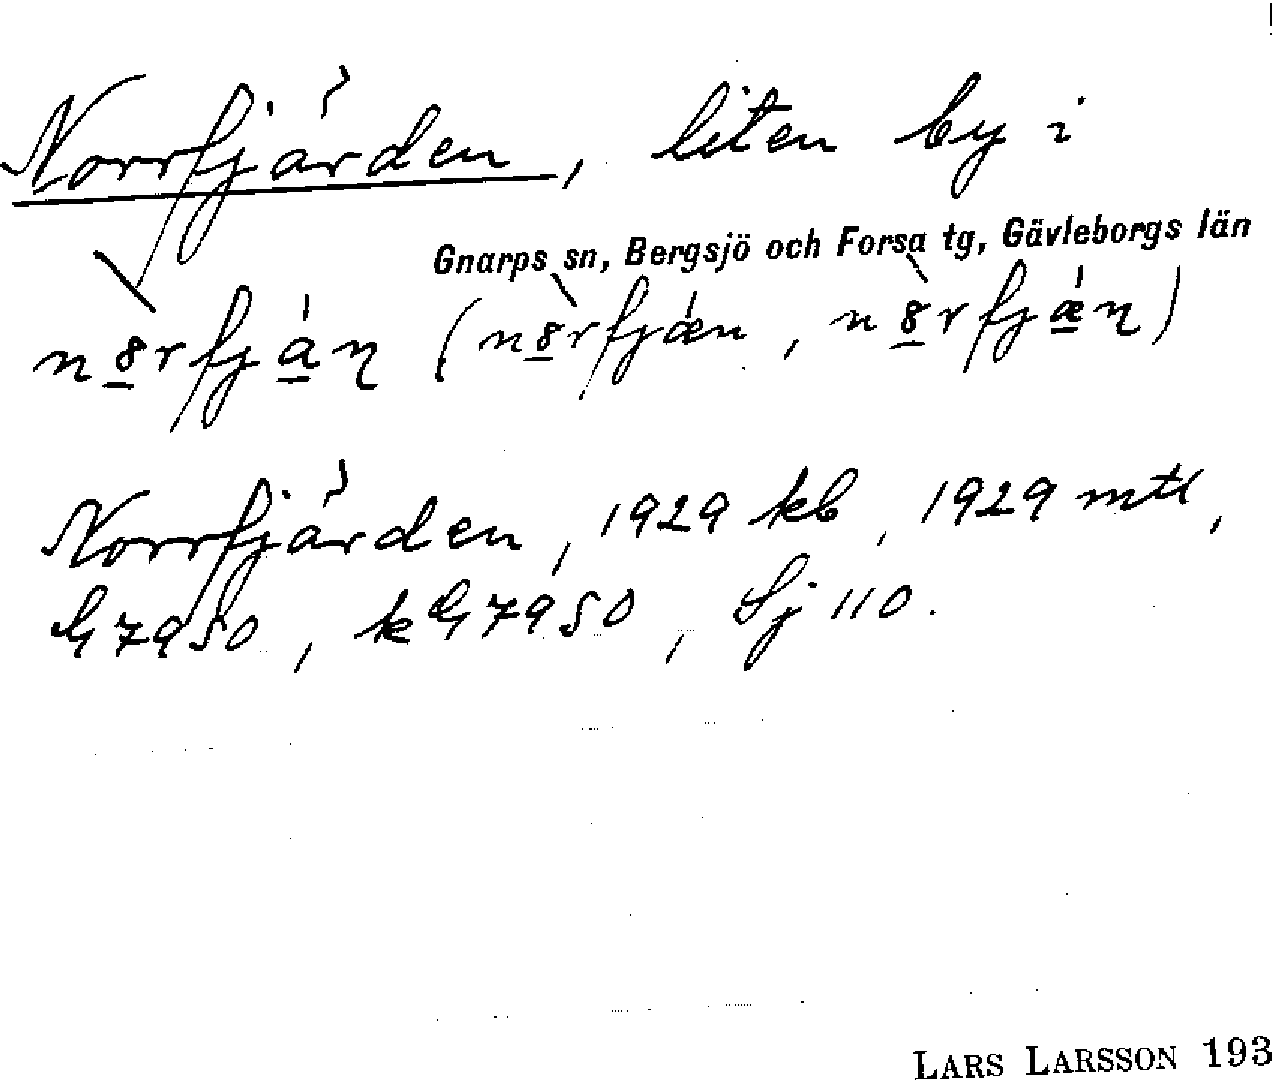 Norrfjärden, liten by i
Gnarps sn, Bergsjö och Forsa tg, Gävleborgs län
Norrfjärden, 1929 kb, 1929 mtl,
G7950, kG7950, Sj 110.
LARS LARSSON 193